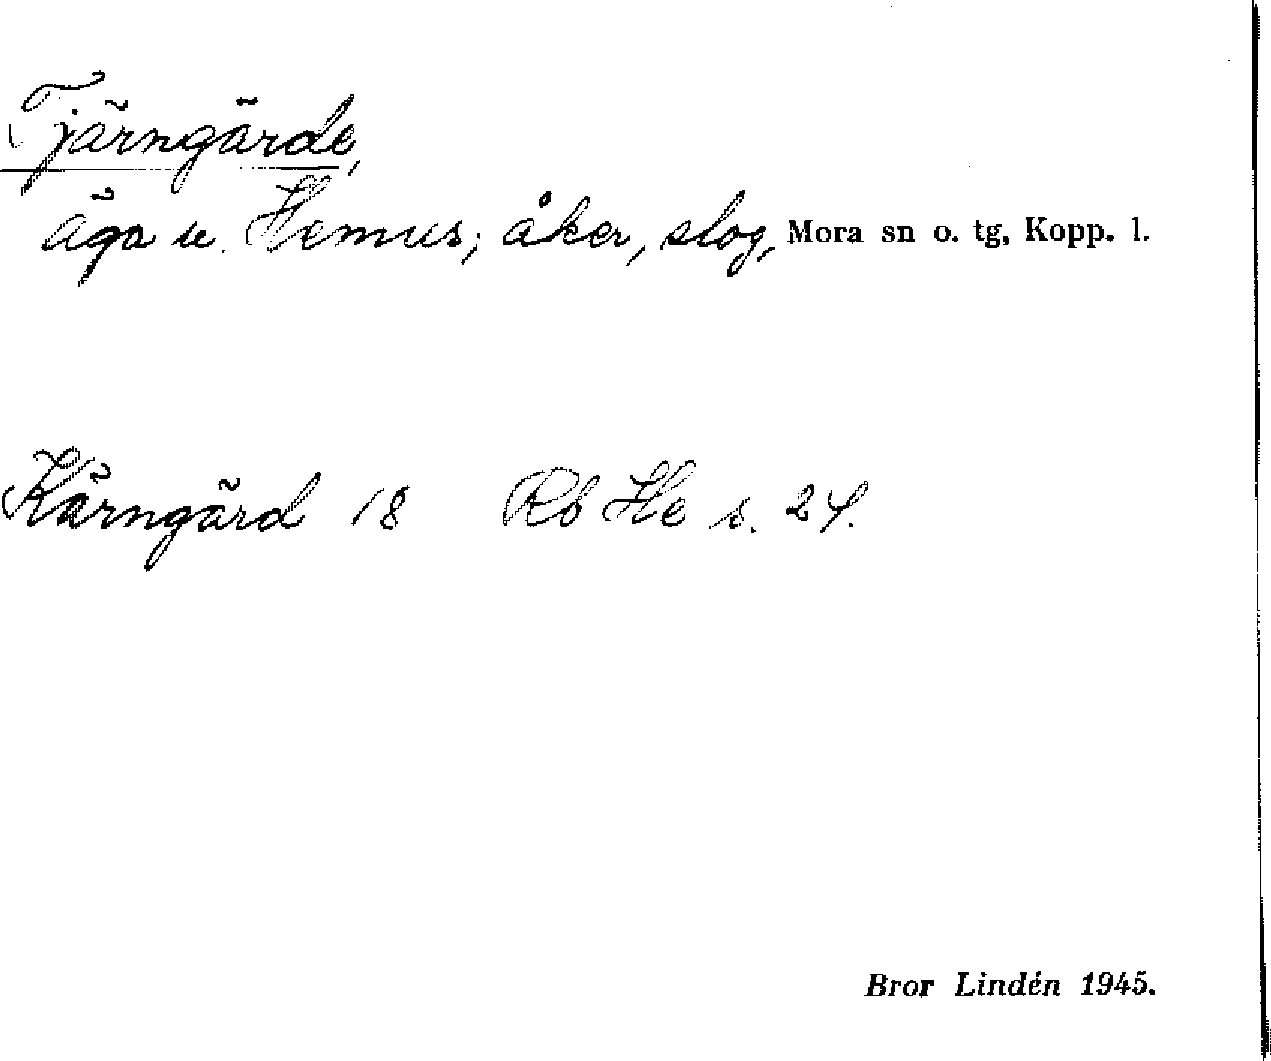 Tjärngärde,
äga u. Hemus; åker, slog, Mora sn o. tg, Kopp. l.
Kärngärd 18 Rb He s. 24.
Bror Lindén 1945.